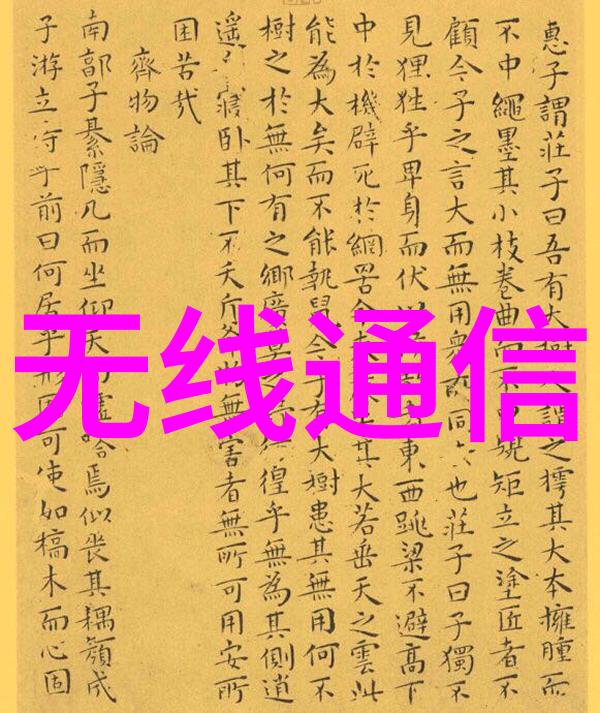 惠子謂莊子曰吾有大樹謂之樗其大本擁腫而
不中繩墨其小枝卷曲而不規矩立之塗匠者不
顧今子之言大而無用衆所同也莊子曰子獨不
見狸狌乎卑身而伏以東西跳梁不避高下
中於機辟死於網罟今其大若垂天之雲此
能為大矣而不能執鼠今子有大樹患其無用何不
樹之於無何有之鄉廣莫之徨乎無為其側逍
遙寢卧其下不夭斤斧物無害者無所可用安所
困苦哉
齊物論
南郭子綦隱几而坐仰天噓嗒焉似喪其耦顏成
子游立侍乎前曰何居乎形固可使如槁木而心固
无线通信